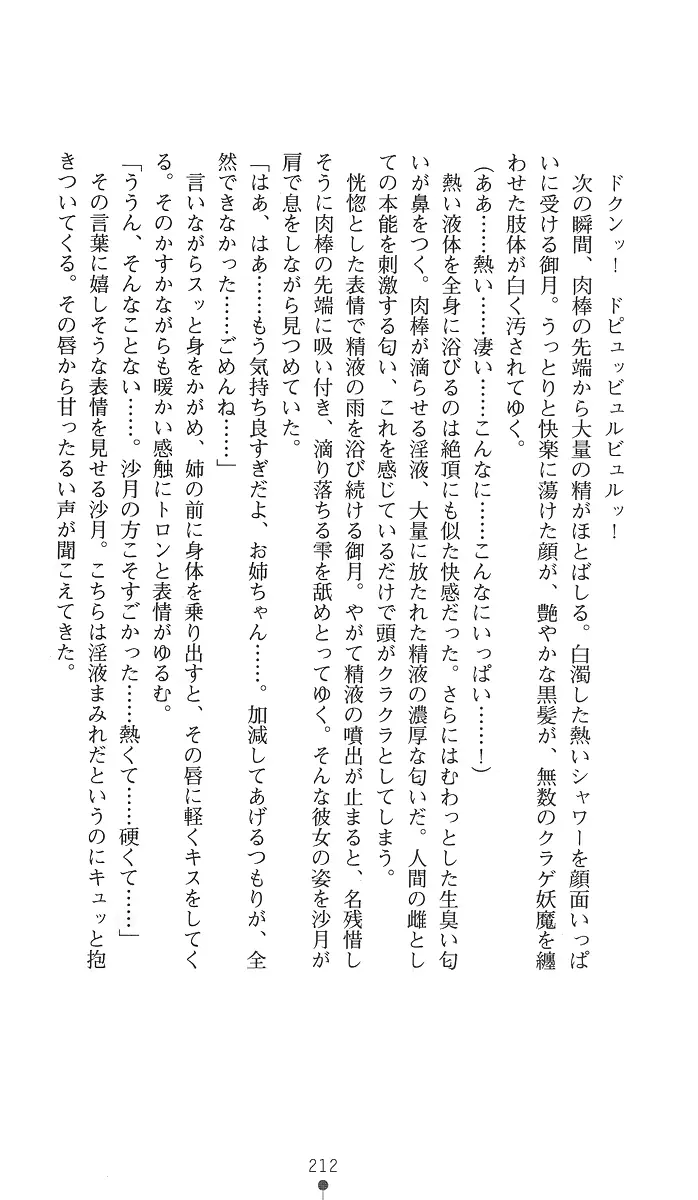 ドクンッ！　ドピュッビュルビュルッ！
次の瞬間、肉棒の先端から大量の精がほとばしる。白濁した熱いシャワーを顔面いっぱ
いに受ける御月。うっとりと快楽に蕩けた顔が、艶やかな黒髪が、無数のクラゲ妖魔を纏
わせた肢体が白く汚されてゆく。
（ああ……熱い……凄い……こんなに……こんなにいっぱい……！）
熱い液体を全身に浴びるのは絶頂にも似た快感だった。さらにはむわっとした生臭い匂
いが鼻をつく。肉棒が滴らせる淫液、大量に放たれた精液の濃厚な匂いだ。人間の雌とし
ての本能を刺激する匂い、これを感じているだけで頭がクラクラとしてしまう。
恍惚とした表情で精液の雨を浴び続ける御月。やがて精液の噴出が止まると、名残惜し
そうに肉棒の先端に吸い付き、滴り落ちる雫を舐めとってゆく。そんな彼女の姿を沙月が
肩で息をしながら見つめていた。
「はあ、はあ……もう気持ち良すぎだよ、お姉ちゃん……。加減してあげるつもりが、全
然できなかった……ごめんね……」
言いながらスッと身をかがめ、姉の前に身体を乗り出すと、その唇に軽くキスをしてく
る。そのかすかながらも暖かい感触にトロンと表情がゆるむ。
「ううん、そんなことない……。沙月の方こそすごかった……熱くて……硬くて……」
その言葉に嬉しそうな表情を見せる沙月。こちらは淫液まみれだというのにキュッと抱
きついてくる。その唇から甘ったるい声が聞こえてきた。
212